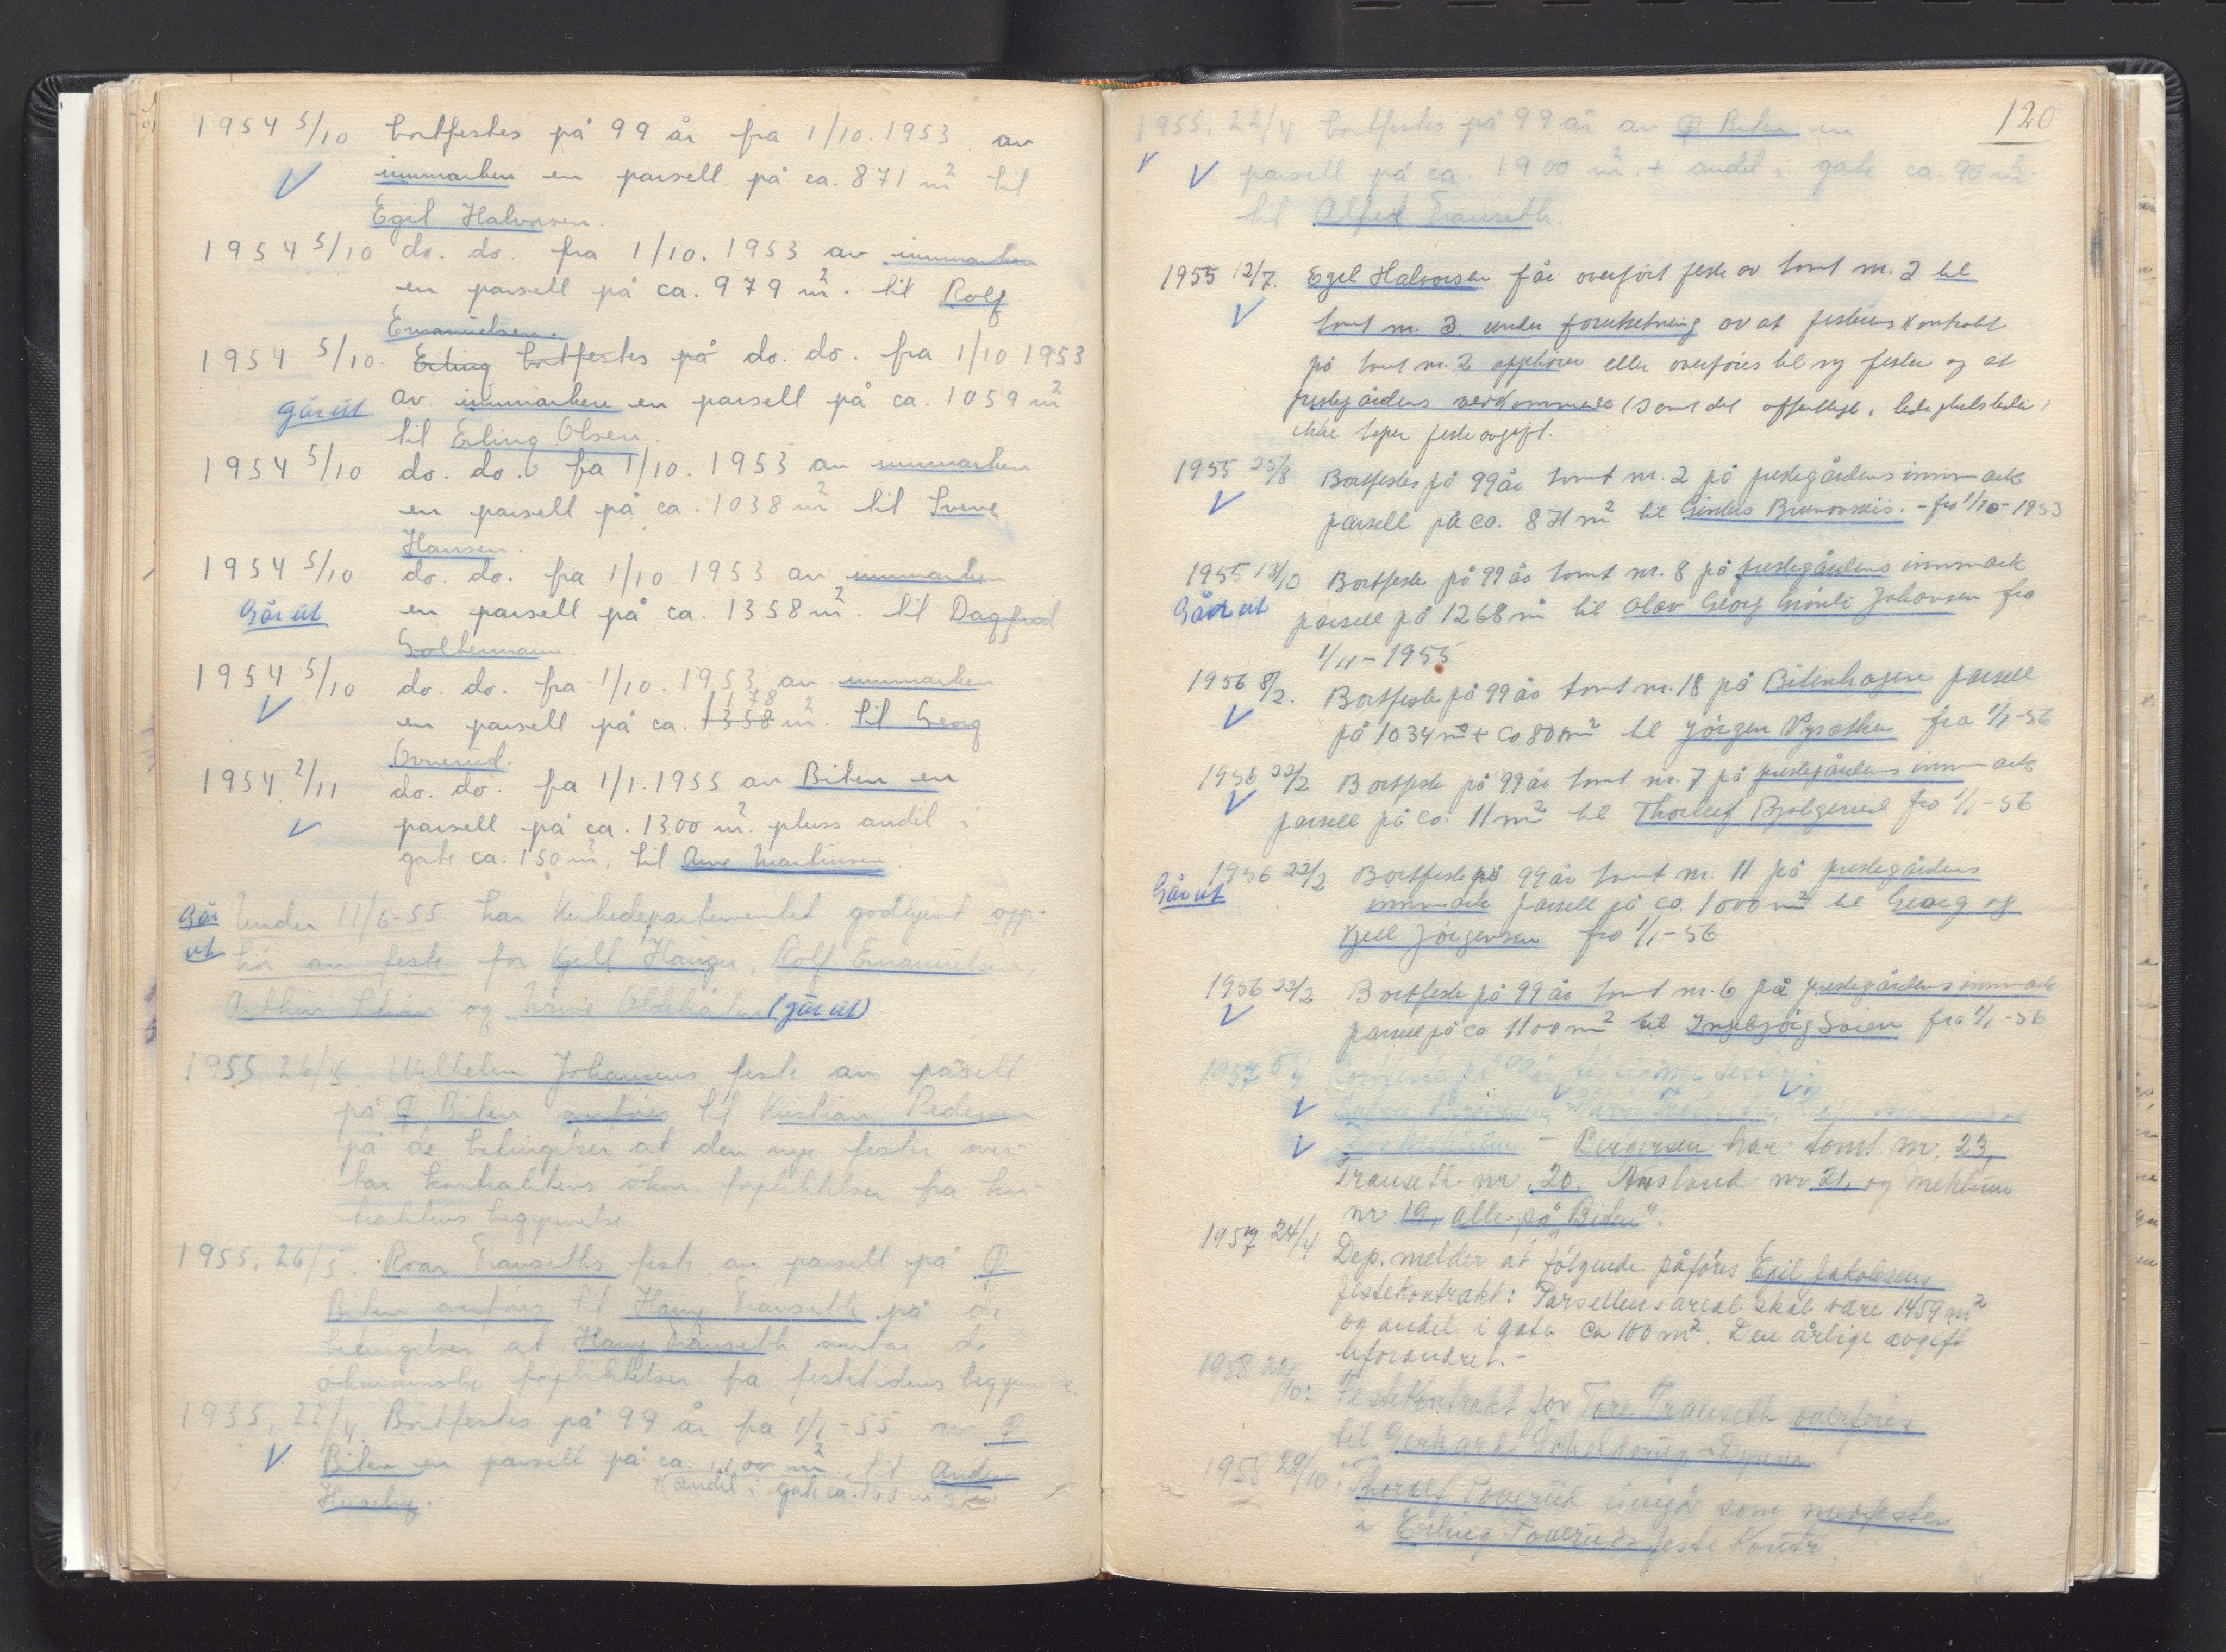 1954 5/10 bortfestes på 99 år fra 1/10. 1953 av
innmarken en parsell på ca. 871 m² til
Egil Halvorsen.
1954 5/10 do. do. fra 1/10. 1953 av innmarken
en parsell på ca. 979 m². til Rolf
Emanuelsen.
1954 5/10. Erling bortfestes på do. do. fra 1/10 1953
går ut av innmarken en parsell på ca. 1059 m²
til Erling Olsen.
1954 5/10 do. do. fra 1/10. 1953 av innmarken
en parsell på ca. 1038 m² til Svene
Hansen.
1954 5/10 do. do. fra 1/10. 1953 av innmarken
Går ut en parsell på ca. 1358 m². til Dagfrid
1954 5/10 do. do. fra 1/10. 1953 av innmarken
1178
en parsell på ca. 1358 m². til Georg
1954 2/11 do. do. fra 1/1. 1955 av Biten en
parsell på ca. 1300 m². pluss andel i
gate ca. 150 m², til Arne Martinsen.
Går ut Under 11/6-55 har Kirkedepartementet godkjent opp-
hør av feste for Kjell Hauger, Rolf Emanuelsen,
og (går ut)
1955. 26/5. Wilhelm Johansens feste av parsell
på Biten overføres til Kristian Pedersen
på de betingelser at den nye fester over-
tar kontraktens økon. forpliktelser fra kon-
traktens begynnelse.
1955. 26/5. Roar Transeths feste av parsell på
Biten overføres til Harry Transeth på de
betingelser at Harry Transeth overtar de
økonomiske forpliktelser fra festetidens begynnelse.
1955, 22/4. Bortfestes på 99 år fra 1/1-55 av
Biten en parsell på ca. m² til
+ andel i gate ca. 100 m²
Huseby.
120
1955, 22/4 bortfestes på 99 år av Biten en
parsell på ca. 1900 m² + andel i gate ca. 90 m²
til Alfred Transeth.
1955 12/7. Egil Halvorsen får overført feste av tomt nr. 2 til
tomt nr. 3 under forutsetning av at festekontrakt
på tomt nr. 2 opphører eller overføres til ny fester og at
prestegårdens vedkommende (samt det offentlige,
ikke taper festeavgift.
1955 25/8 Bortfestes på 99 år tomt nr. 2 på prestegårdens innmark
parsell på ca. 871 m² til Brunovskis. - fra 1/10-1953
1955 13/10 Bortfeste på 99 år tomt nr. 8 på prestegårdens innmark
Går ut parsell på 1268 m² til Olav Georg Grønli Johansen fra
1/11-1955
1956 8/2. Bortfeste på 99 år tomt nr. 18 på Bitenhagen parsell
på 1034 m² + ca 80 m² til Jörgen fra 1/1-56
1956 22/2 Bortfeste på 99 år tomt nr. 7 på prestegårdens innmark
parsell på ca. 11 m² til Thorleif fra 1/1-56
1956 22/2 Bortfeste på 99 år tomt nr. 11 på prestegårdens
Går ut innmark parsell på ca. 1000 m² til Georg og
Kjell Jörgensen fra 1/1-56
1956 22/2 Bortfeste på 99 år tomt nr. 6 på prestegårdens innmark
parsell på ca 1100 m² til Ingebjörg Soien fra 1/1-56
1957 5/4 Bortfeste på 99 år til
- Bergersen har tomt nr. 23,
Transeth nr. 20, Ausland nr 21, og Mehlum
nr 19, alle på "Biten".
1957 24/4 Dep. melder at følgende påföres Egil Jakobsens
festekontrakt: Parsellens areal skal være 1459 m²
og andel i gate ca 100 m². Den årlige avgift
uforandret. -
1958 22/10: Festekontrakt for Tore Transeth overføres
til Gerhard
1958 29/10: Thoralf Toverud inngår som medfester
i Erling Toveruds feste kontr.